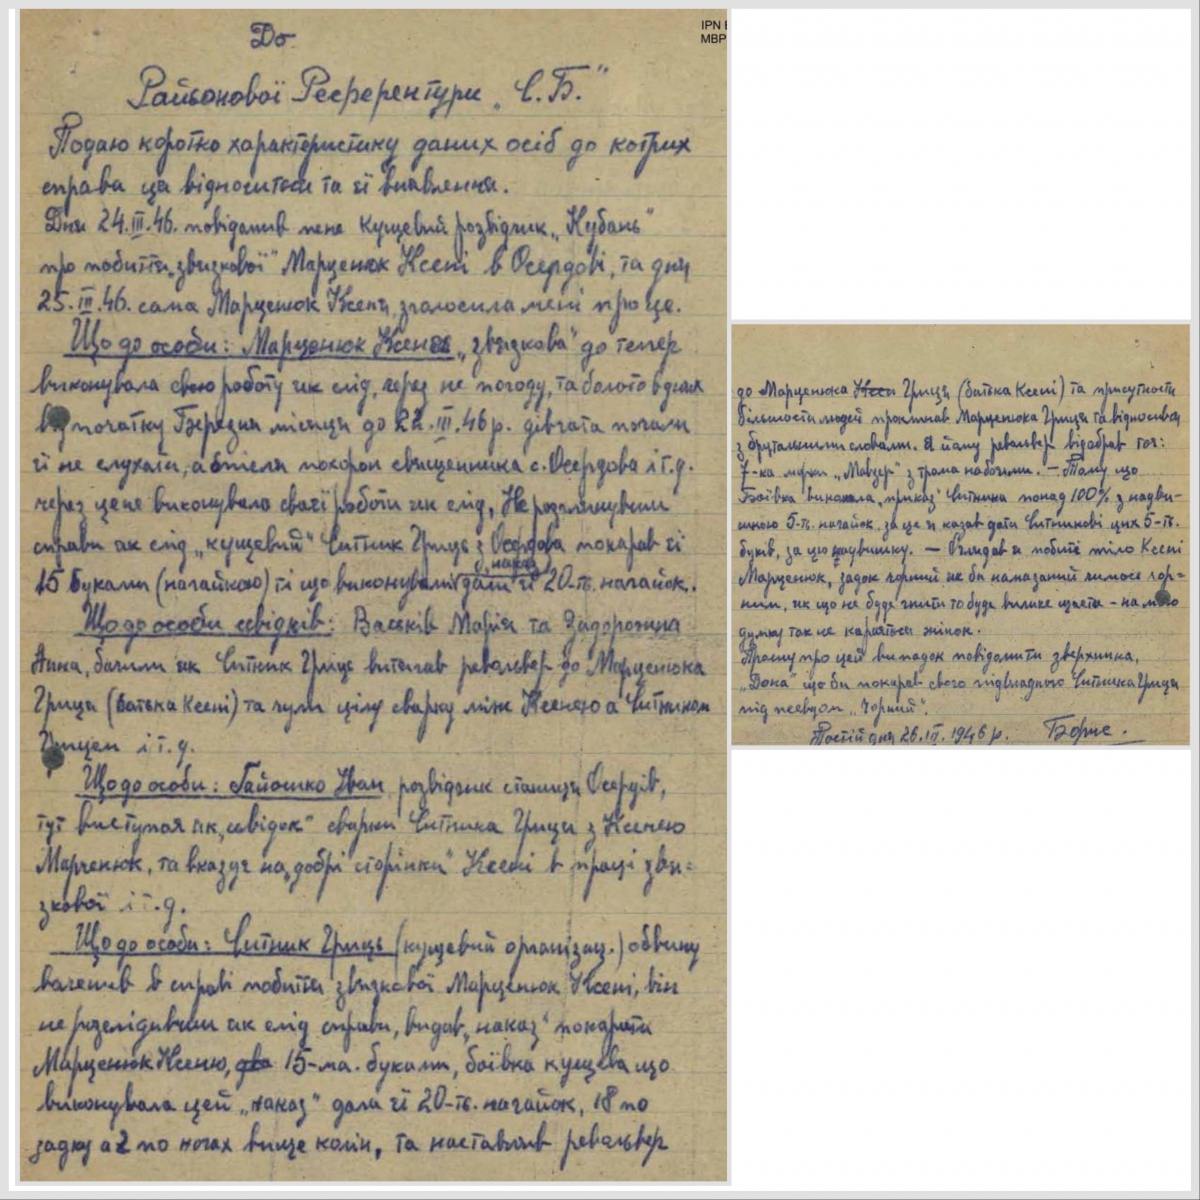 До
IPN
MBP
Районової Референтури „С.Б."
Подаю коротко характеристику даних осіб до котрих
справа ця відноситься та її виявлення.
Дня 24.III.46. повідомив мене кущевий розвідчик „Кубань"
про побиття „звязкової" Марценюк Ксені в Осердові, та дня
25.III.46. сама Марценюк Ксеня зголосила мені про це.
Що до особи: Марценюк Ксеня „звязкова" до тепер
виконувала свою роботу як слід, через не погоду, та болото в днях
від початку Березня місяця до 22.III.46 р. дівчата почали
її не слухати, а опісля похорон священника с. Осердова і т.д.
через це не виконувала своєї роботи як слід, Не розглянувши
справи як слід „кущевий" Читник Гриць з Осердова покарав її
15 буками (нагайкою) ті що виконували наказ дали їй 20-ть нагайок.
Що до особи свідків: Васьків Марія та Задорожна
Анна, бачили як Читник Гриць витягав револьвер до Марценюка
Гриця (батька Ксені) та чули цілу сварку між Ксенею а Читником
Грицем і т.д.
Що до особи: Гайошко Іван розвідчик станиці Осердів,
тут виступая як „свідок" сварки Читника Гриця з Ксенею
Марченюк, та вказує на „добрі сторінки" Ксені в праці звя-
зкової і т.д.
Що до особи: Читник Гриць (кущевий організац.) обвину
вачений в справі побиття звязкової Марценюк Ксені, він
не розслідивши як слід справи, видав „наказ" покарати
Марценюк Ксеню, 15-ма. буками, боївка кущева що
виконувала цей „наказ" дала її 20-ть. нагайок, 18 по
задку а 2 по ногах вище колін, та наставляв револьвер
до Марценюка Гриця (батька Ксені) та присутности
більшости людей проклинав Марценюка Гриця та відносився
з брутальними словами. Я йому револьвер відобрав
7-ка марки „Мавзер" з трома набоями. — Тому що
Боївка виконала „приказ" Читника понад 100% з надви-
шкою 5-ть. нагайок, за це я казав дати Читникові цих 5-ть.
буків, за цю надвишку. — Оглядав я побите тіло Ксені
Марценюк, задок чорний як би намазаний чимось чор-
ним, як що не буде гнити то буде велике щастя - на мою
думку так не карається жінок.
Прошу про цей випадок повідомити зверхника,
„Дока" що би покарав свого підвладного Читника Гриця
під псевдом „Чорний".
Постій дня 26.III.1946 р. Борис.